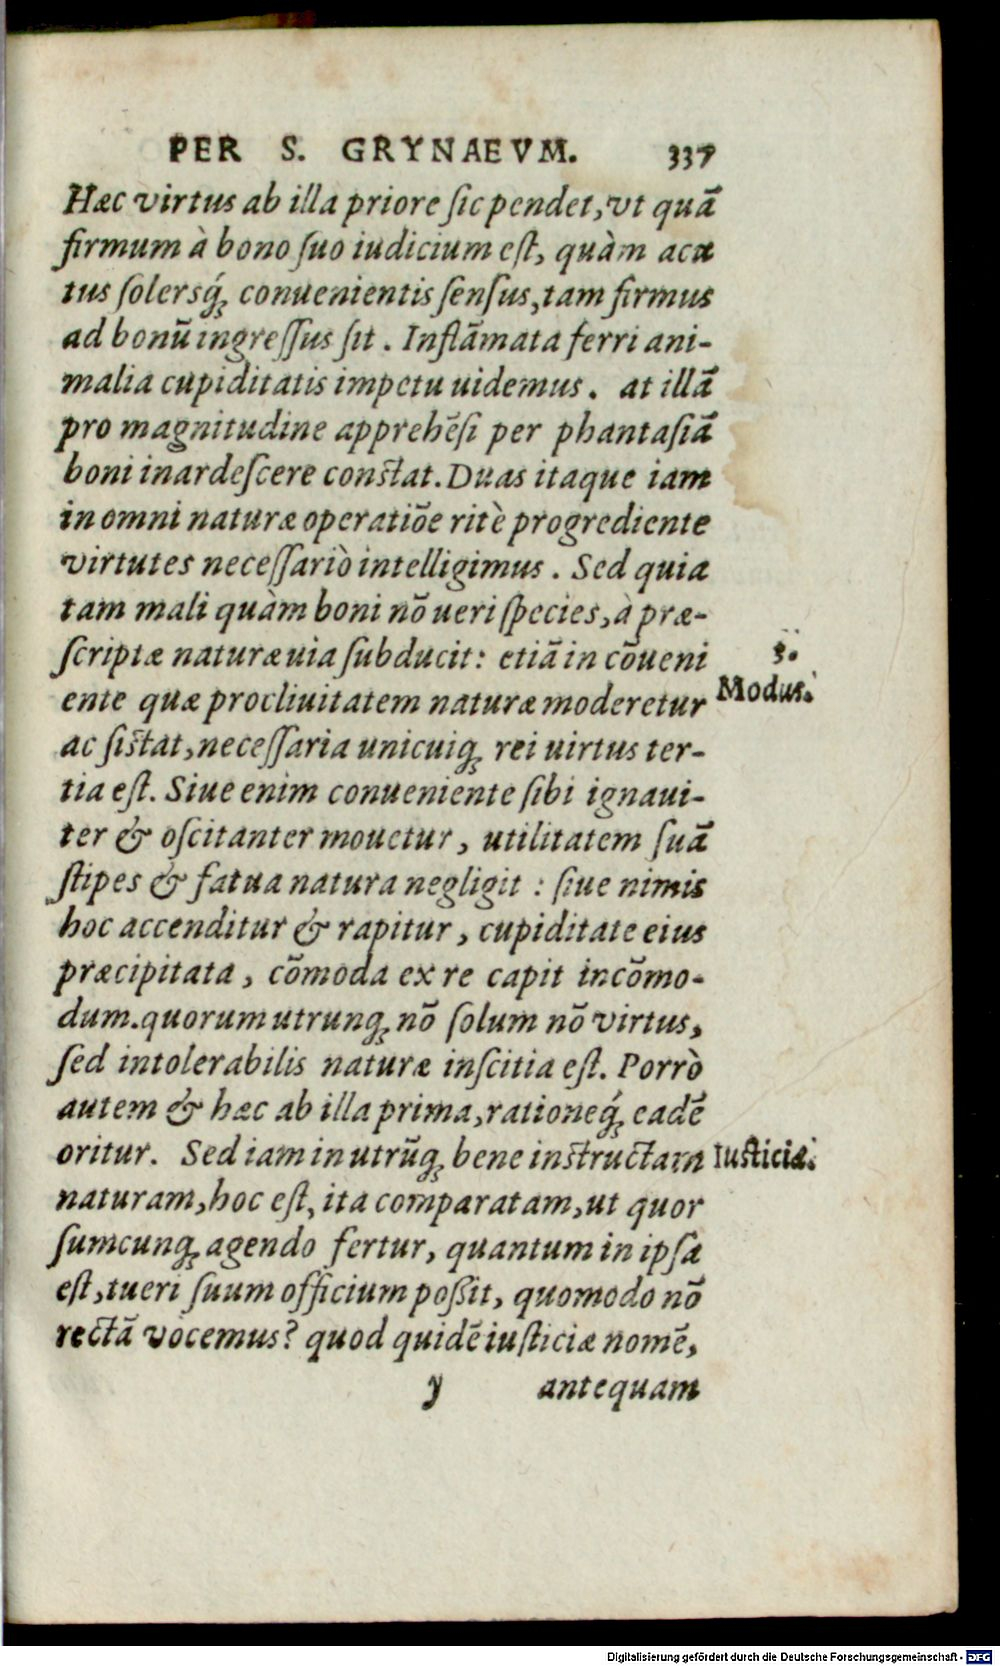 PER S. GRYNAEVM. 337
Hæc virtus ab illa priore ſic pendet, vt quã
firmum à bono ſuo iudicium eſt, quàm acu
tus ſolersq́; conuenientis ſenſus, tam firmus
ad bonũ ingreſſus ſit. Inflãmata ferri ani-
malia cupiditatis impetu uidemus. at illã
pro magnitudine apprehẽſi per phantaſiã
boni inardeſcere conſtat. Duas itaque iam
in omni naturæ operatiõe ritè progrediente
virtutes neceſſariò intelligimus. Sed quia
tam mali quàm boni nõ ueri ſpecies, à præ-
ſcriptæ naturæ uia ſubducit: etiã in cõueni
3.
ente quæ procliuitatem naturæ moderetur
Modus.
ac ſiſtat, neceſſaria unicuiq; rei uirtus ter-
tia eſt. Siue enim conueniente ſibi ignaui-
ter & oſcitanter mouetur, utilitatem ſuã
ſtipes & fatua natura negligit: ſiue nimis
hoc accenditur & rapitur, cupiditate eius
præcipitata, cõmoda ex re capit incõmo-
dum. quorum utrunq; nõ ſolum nõ virtus,
ſed intolerabilis naturæ inſcitia eſt. Porrò
autem & hæc ab illa prima, rationeq́; eadẽ
oritur. Sed iam in utrũq; bene inſtructam
Iuſticiæ.
naturam, hoc eſt, ita comparatam, ut quor
ſumcunq; agendo fertur, quantum in ipſa
eſt, tueri ſuum officium poßit, quomodo nõ
rectã vocemus? quod quidẽ iuſticiæ nomẽ,
y antequam
Digitalisierung gefördert durch die Deutsche Forschungsgemeinschaft - DFG